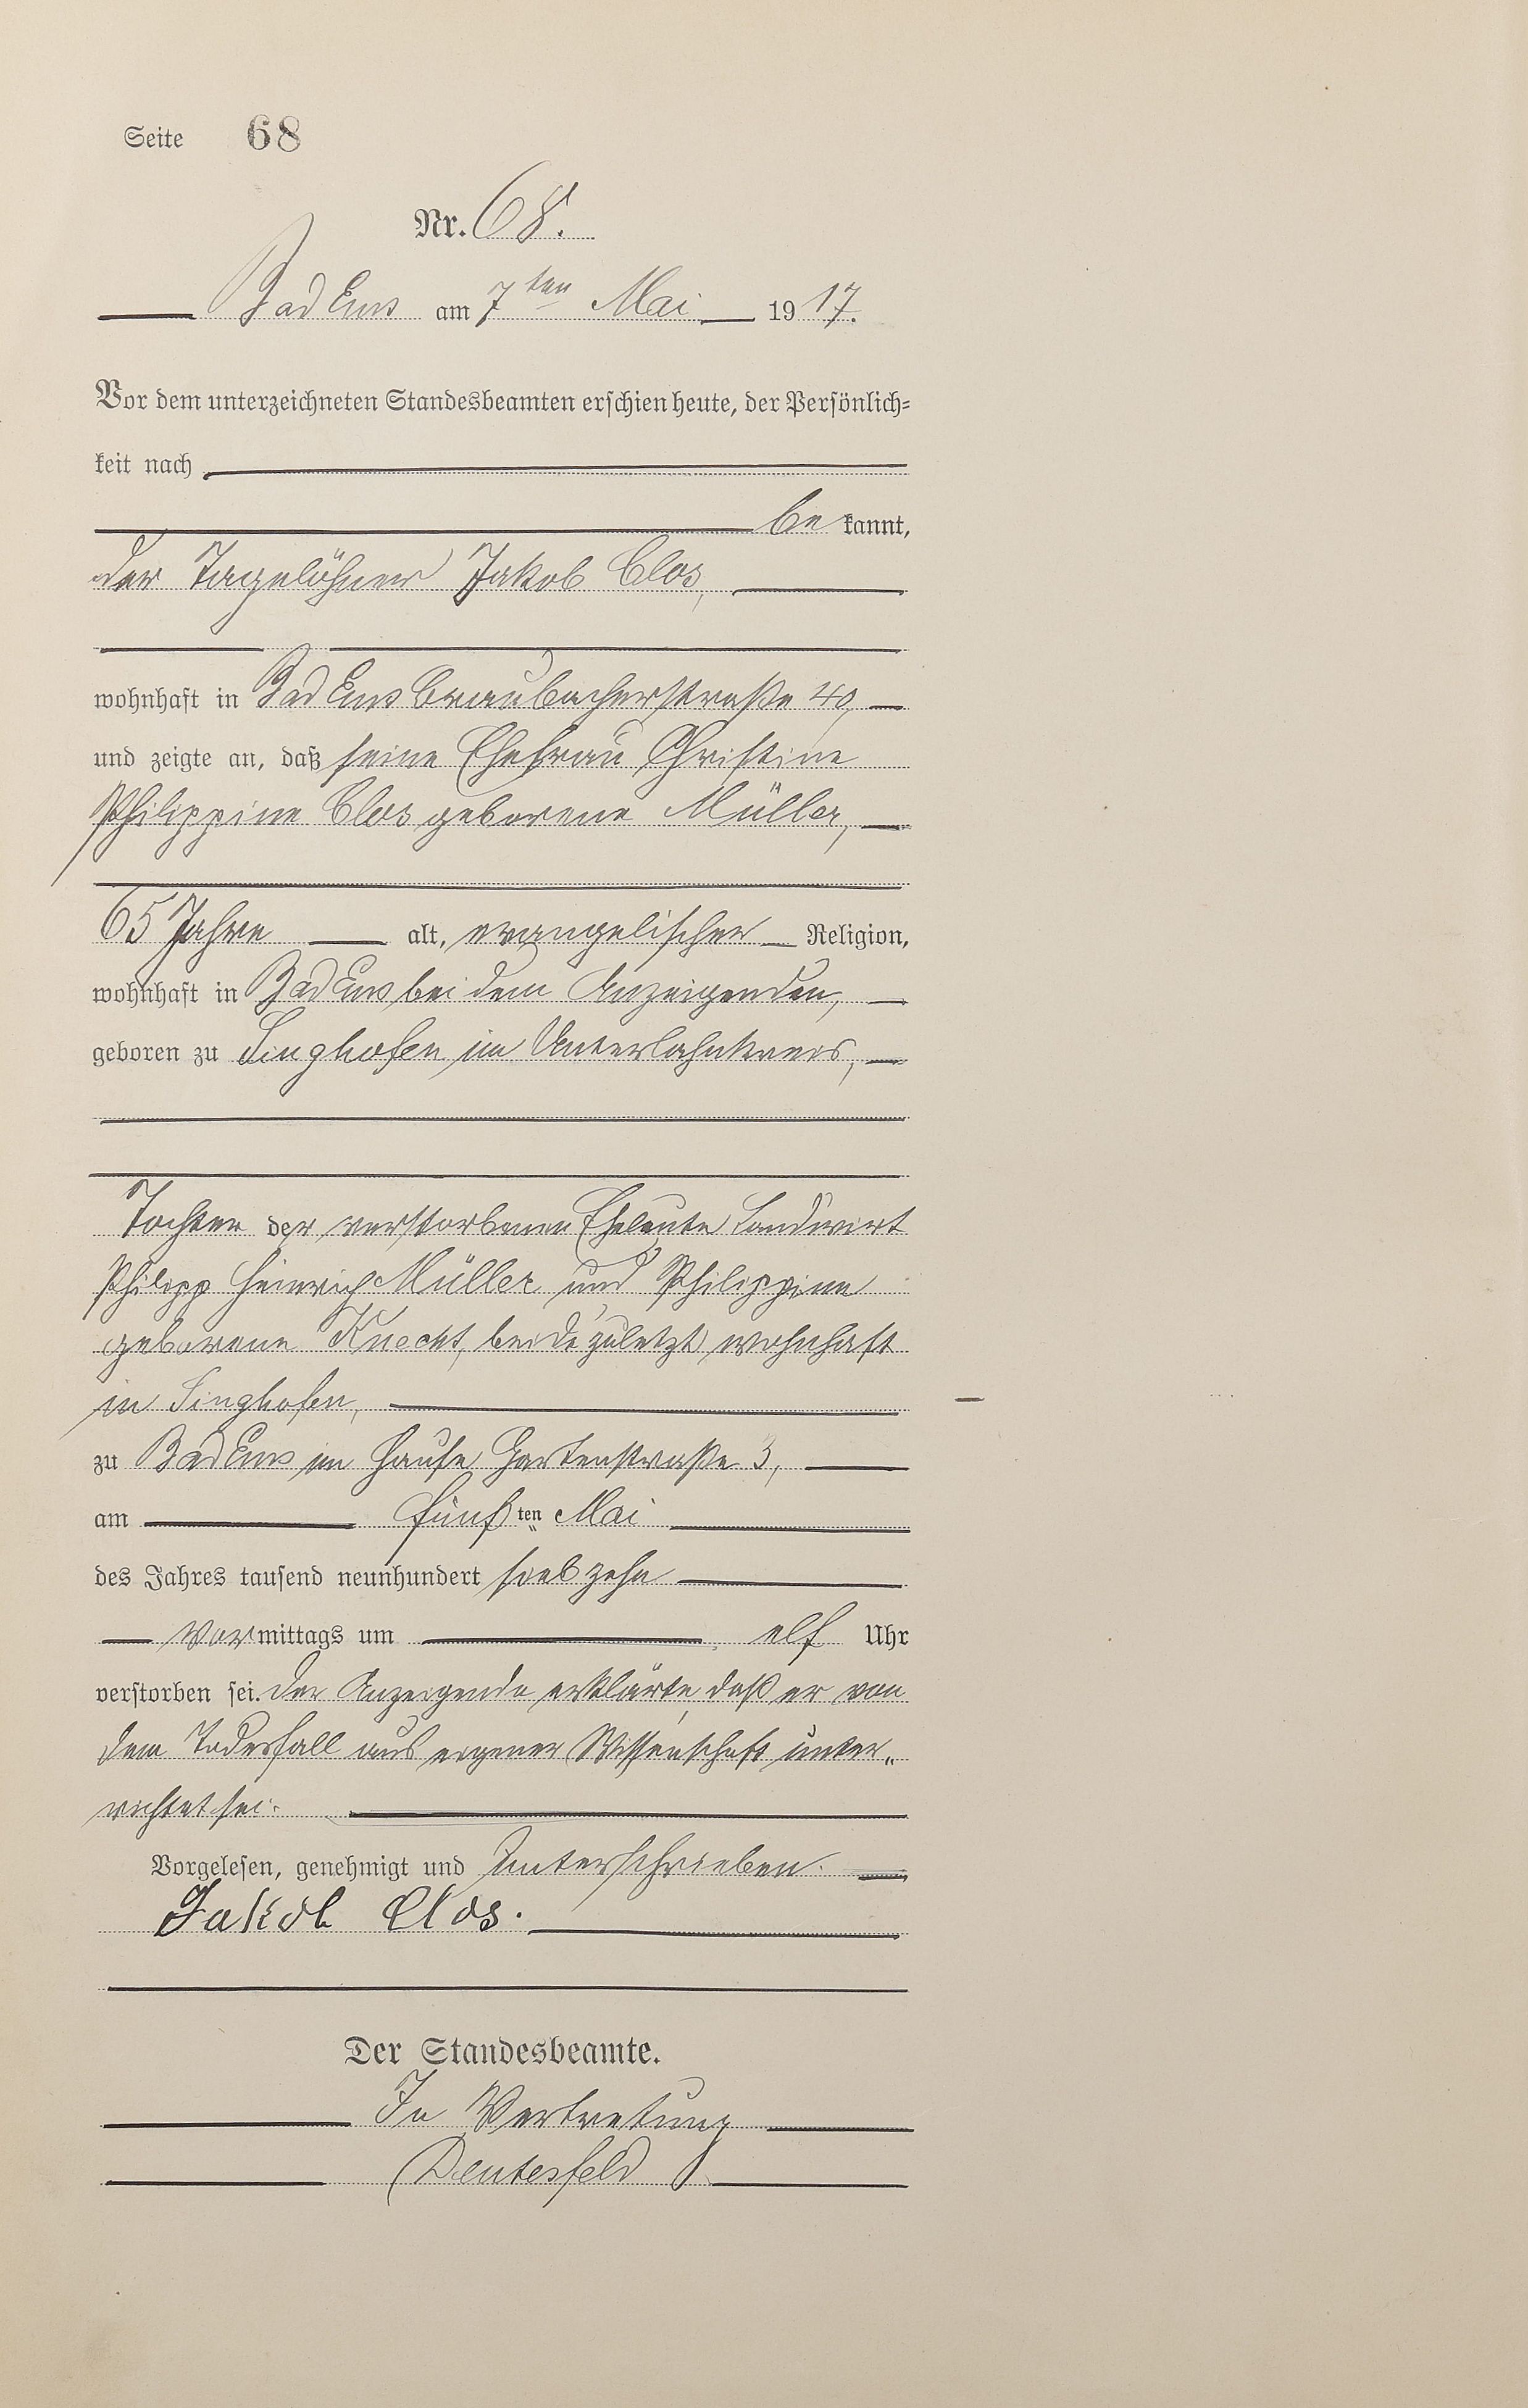 Seite 68
Nr. 68.
Bad Ems am 7ten Mai 1917.
Vor dem unterzeichneten Standesbeamten erschien heute, der Persönlich-
keit nach
be kannt,
der Tagelöhner Jakob Clos,
wohnhaft in Bad Ems Braubacherstraße 40,
und zeigte an, daß seine Ehefrau Christine
Philippine Clos geborene Müller,
65 Jahre alt, evangelischer Religion,
wohnhaft in Bad Ems bei dem Anzeigenden,
geboren zu Singhofen im Unterlahnkreis,
Tochter der verstorbenen Eheleute Landwirt
Philipp Heinrich Müller und Philippine
geborene Knecht, beide zuletzt wohnhaft
in Singhofen,
zu Bad Ems im Hause Gartenstraße 3,
am fünften Mai
des Jahres tausend neunhundert siebzehn
Vormittags um elf Uhr
verstorben sei. Der Anzeigende erklärte, daß er von
dem Todesfall aus eigener Wissenschaft unter„
richtet sei.
Vorgelesen, genehmigt und unterschrieben.
Jakob Clos.
Der Standesbeamte.
In Vertretung
Deutesfeld